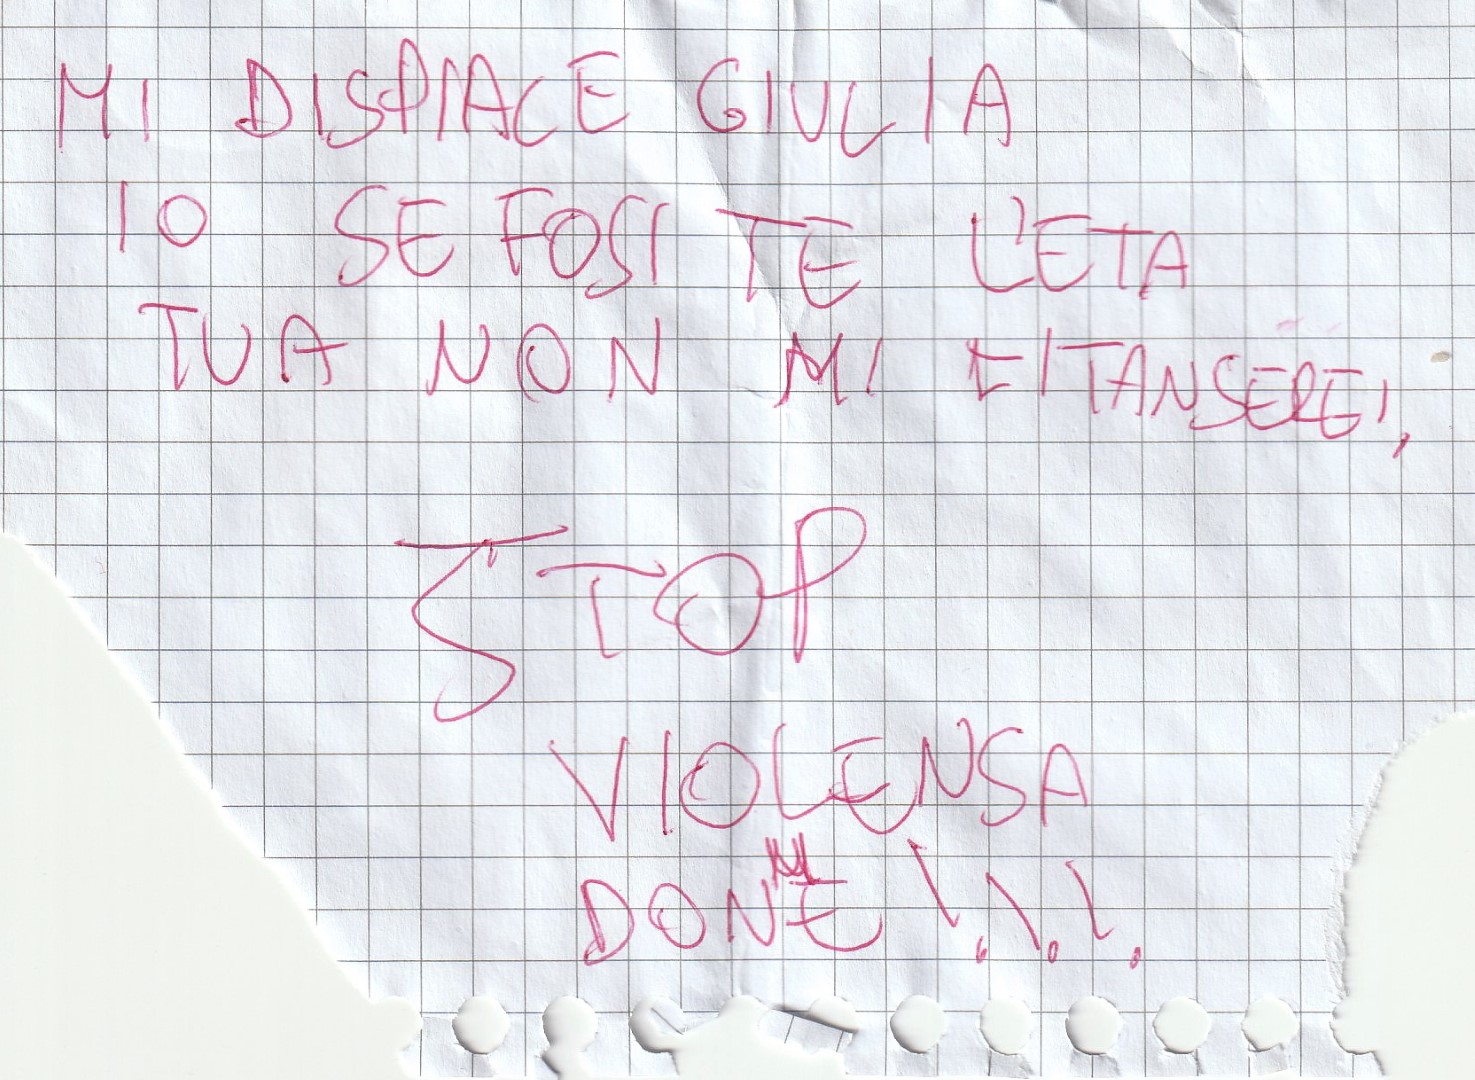 MI DISPIACE GIULIA
IO SE FOSI TE L'ETA
TUA NON MI FITANSEREI,
STOP
VIOLENSA
DONNE !!!